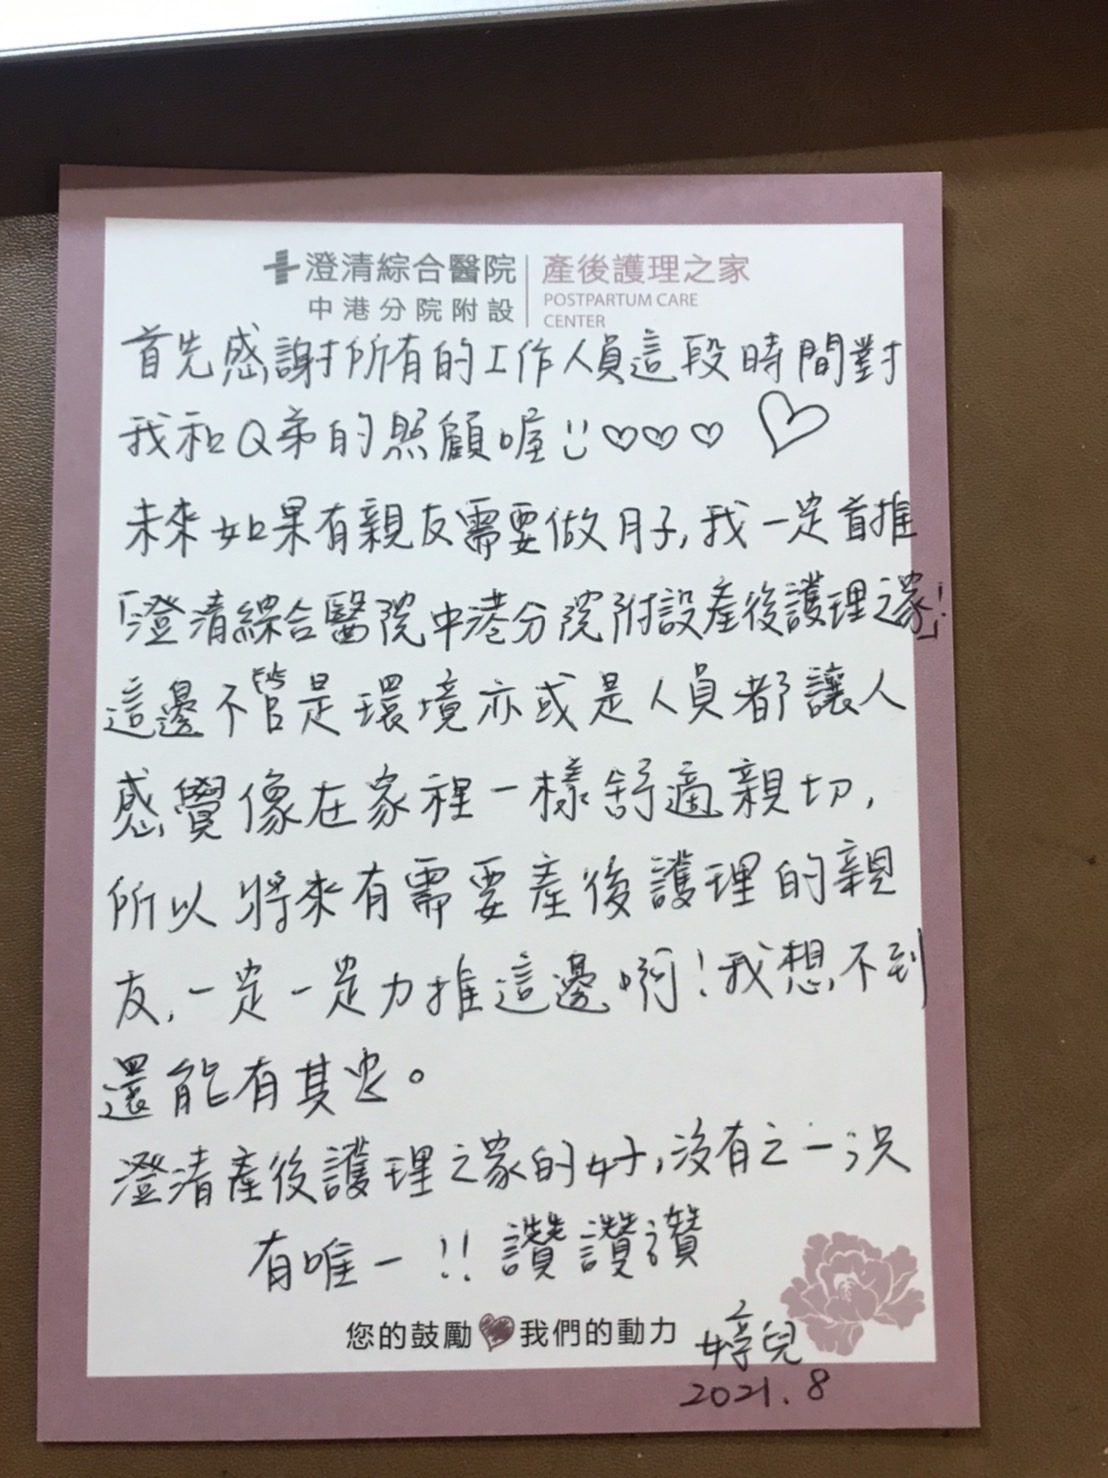 澄清綜合醫院
中港分院附設
產後護理之家
POSTPARTUM CARE
CENTER
首先感謝所有的工作人員這段時間對
我和Q弟的照顧喔!!♡♡♡ ♡
未來如果有親友需要做月子,我一定首推
「澄清綜合醫院中港分院附設產後護理之家」!
這邊不管是環境亦或是人員都讓人
感覺像在家裡一樣舒適親切,
所以將來有需要產後護理的親
友,一定一定力推這邊啊!我想不到
還能有其他。
澄清產後護理之家的好,沒有之一只
有唯一!!讚讚讚
您的鼓勵♥我們的動力
婷兒
2021.8